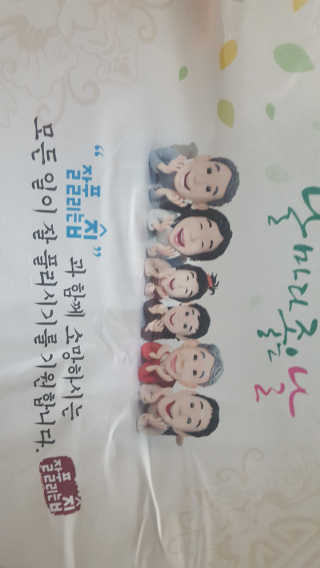 날마다 좋은 날
“잘 풀리는 집” 과 함께 소망하시는
모든 일이 잘 풀리시기를 기원합니다.
잘 풀리는 집